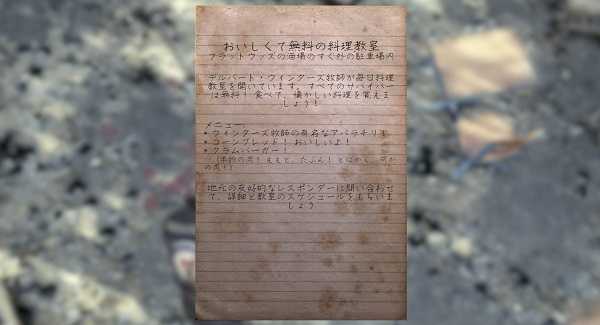 おいしくて無料の料理教室
フラットウッズの酒場のすぐ外の駐車場内
デルバート・ウィンターズ牧師が毎日料理
教室を開いています。すべてのサバイバー
は無料！ 食べて、懐かしい料理を覚えま
しょう！
メニュー:
• ウィンターズ牧師の有名なアパラチリ！
• コーンブレッド！ おいしいよ！
• クラムバーガー！
の肉！ ええと、たぶん！ とにかく、何か
の肉！)
地元の友好的なレスポンダーに問い合わせ
て、詳細と教室のスケジュールをもらいま
しょう